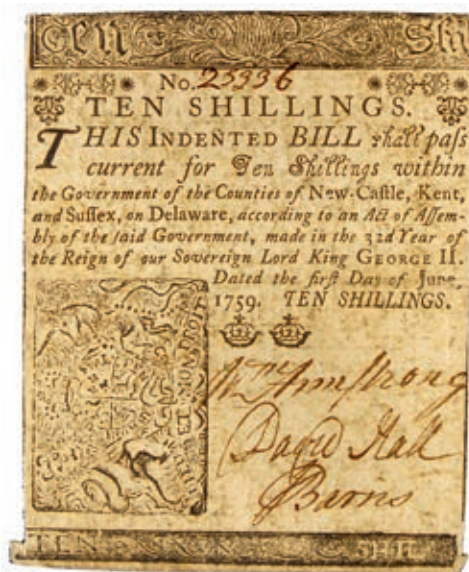 Ten Shi
No. 25336
TEN SHILLINGS.
THIS INDENTED BILL ſhall paſs
current for Ten Shillings within
the Government of the Counties of New-Caſtle, Kent,
and Suſſex, on Delaware, according to an Act of Aſſem-
bly of the ſaid Government, made in the 32d Year of
the Reign of our Sovereign Lord King GEORGE II.
Dated the firſt Day of June,
1759. TEN SHILLINGS.
Wm Armſtrong
David Hall
Barns
TEN SHIL